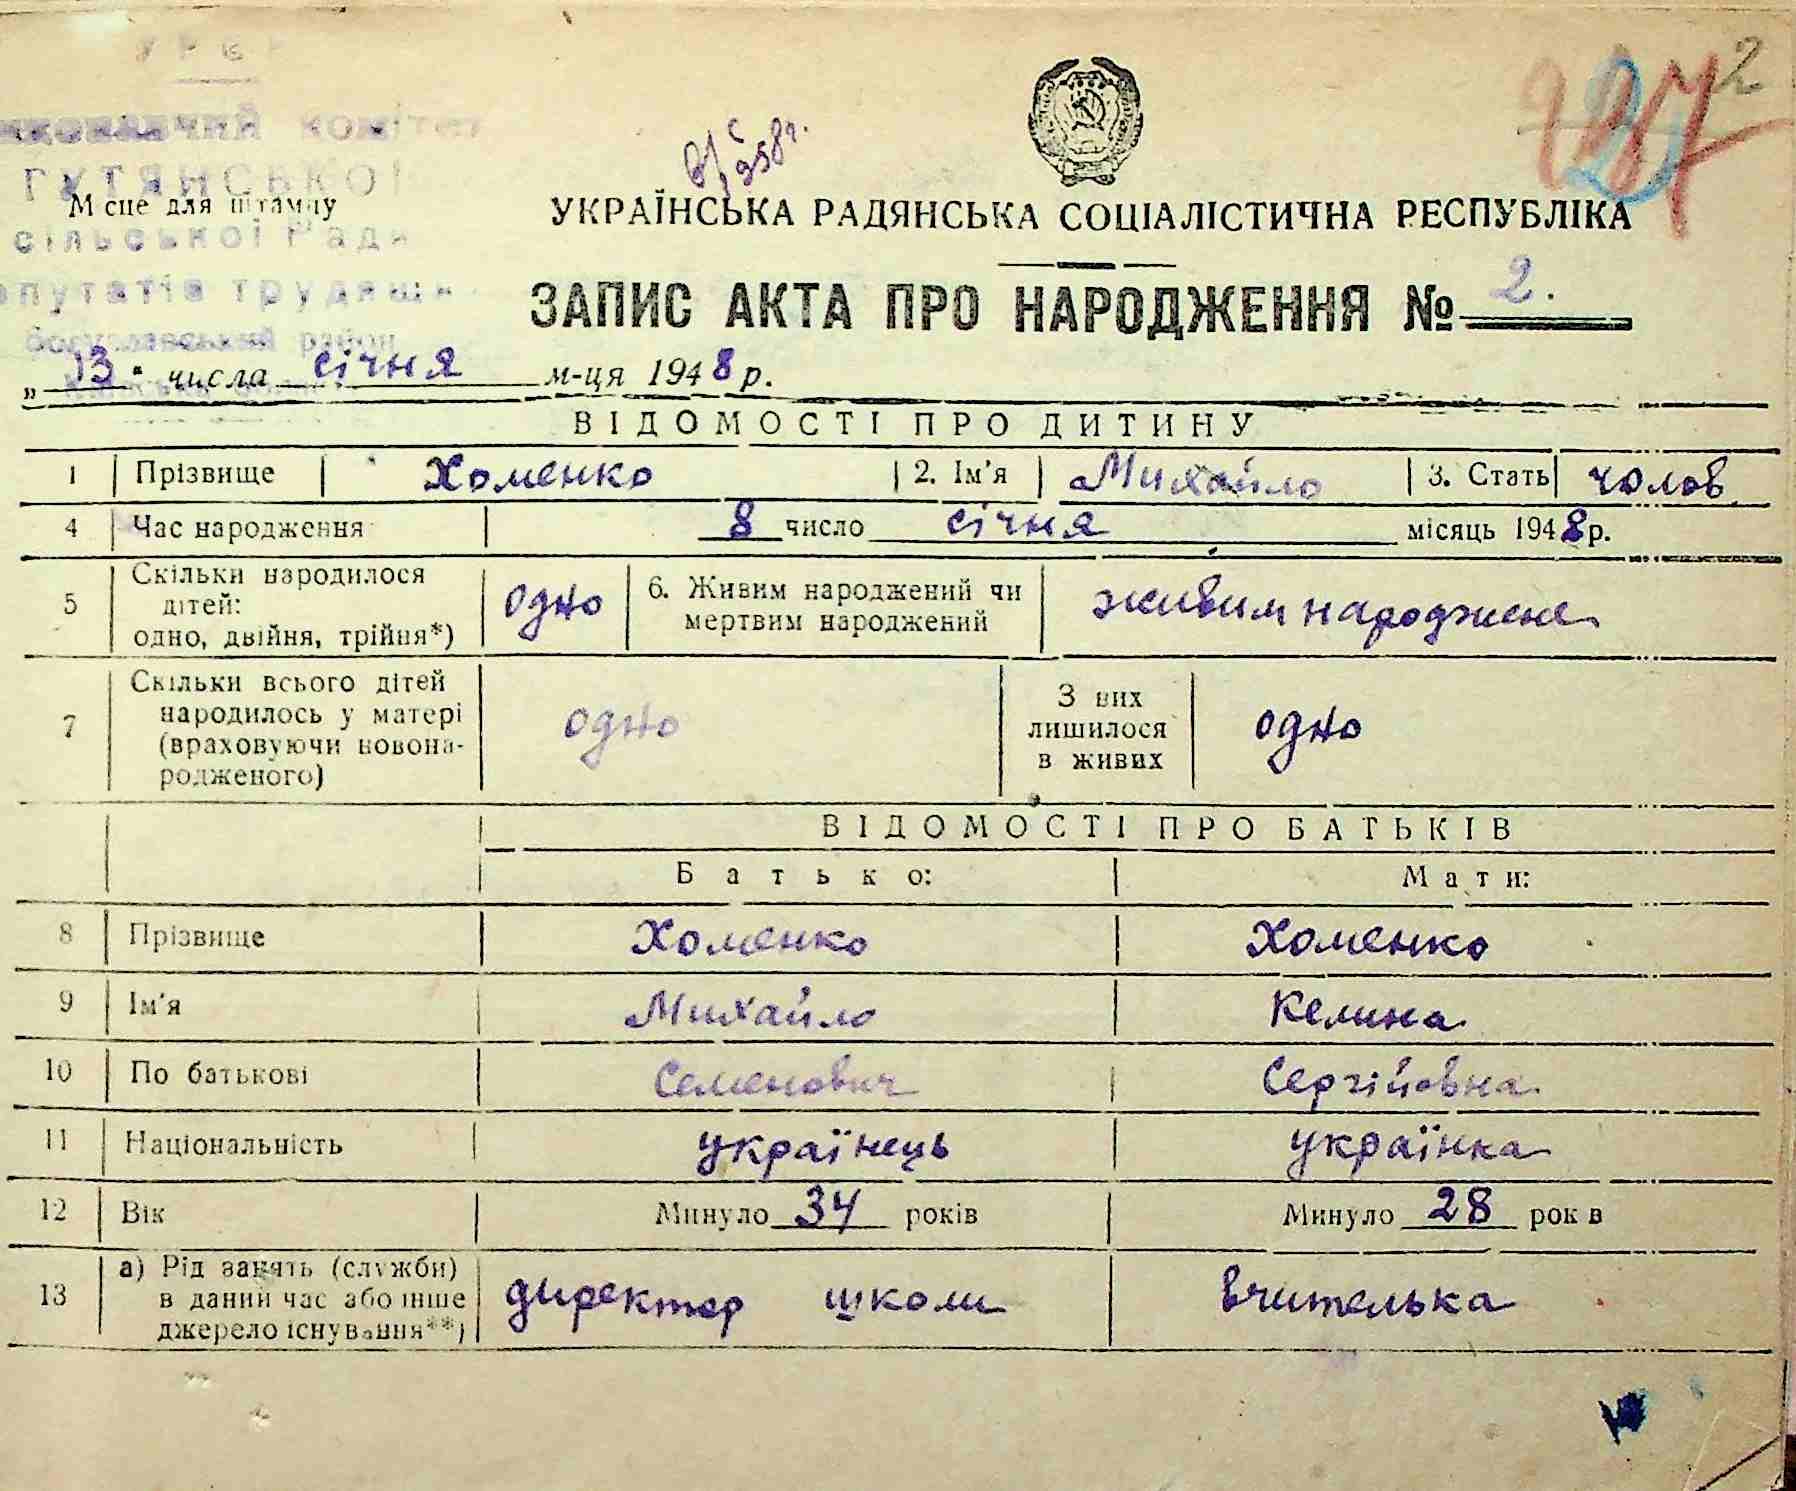 УРСР
виконавчий комітет
ГУТЯНСЬКОЇ
Місце для штампу
сільської Ради
депутатів трудящих
Богуславський район
2
УКРАЇНСЬКА РАДЯНСЬКА СОЦІАЛІСТИЧНА РЕСПУБЛІКА
ЗАПИС АКТА ПРО НАРОДЖЕННЯ № 2.
„13" числа січня м-ця 1948 р.
ВІДОМОСТІ ПРО ДИТИНУ
1 Прізвище Хоменко 2. Ім'я Михайло 3. Стать чолов
4 Час народження 8 число січня місяць 1948 р.
5 Скільки народилося дітей: одно, двійня, трійня*) одно 6. Живим народжений чи мертвим народжений живим народжене
7 Скільки всього дітей народилось у матері (враховуючи новонародженого) одно З них лишилося в живих одно
ВІДОМОСТІ ПРО БАТЬКІВ
Батько: Мати:
8 Прізвище Хоменко Хоменко
9 Ім'я Михайло Келина
10 По батькові Семенович Сергійовна
11 Національність українець українка
12 Вік Минуло 34 років Минуло 28 років
13 а) Рід занять (служби) в даний час або інше джерело існування**) директор школи вчителька